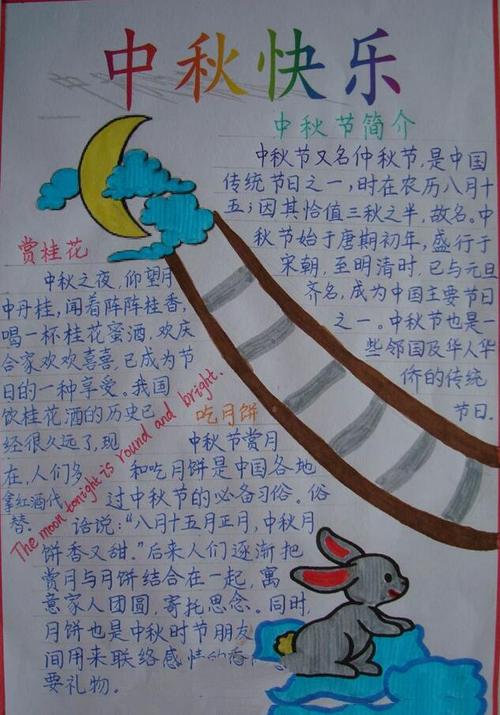 中秋快乐
中秋节简介
中秋节又名仲秋节,是中国
传统节日之一,时在农历八月十
五;因其恰值三秋之半,故名。中
秋节始于唐期初年,盛行于
宋朝,至明清时,已与元旦
齐名,成为中国主要节日
之一。中秋节也是一
些邻国及华人华
侨的传统
节日.
赏桂花
中秋之夜,仰望月
中丹桂,闻着阵阵桂香,
喝一杯桂花蜜酒,欢庆
合家欢欢喜喜,已成为节
日的一种享受。我国
饮桂花酒的历史已
经很久远了,现
在,人们多
拿红酒代
替。
The moon tonight is round and bright.
吃月饼
中秋节赏月
和吃月饼是中国各地
过中秋节的必备习俗。俗
话说:“八月十五月正月,中秋月
饼香又甜。”后来人们逐渐把
赏月与月饼结合在一起,寓
意家人团圆,寄托思念。同时,
月饼也是中秋时节朋友
间用来联络感情的
要礼物。